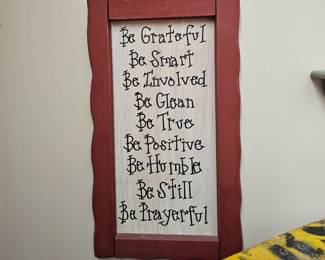 Be Grateful
Be Smart
Be Involved
Be Clean
Be True
Be Positive
Be Humble
Be Still
Be Prayerful